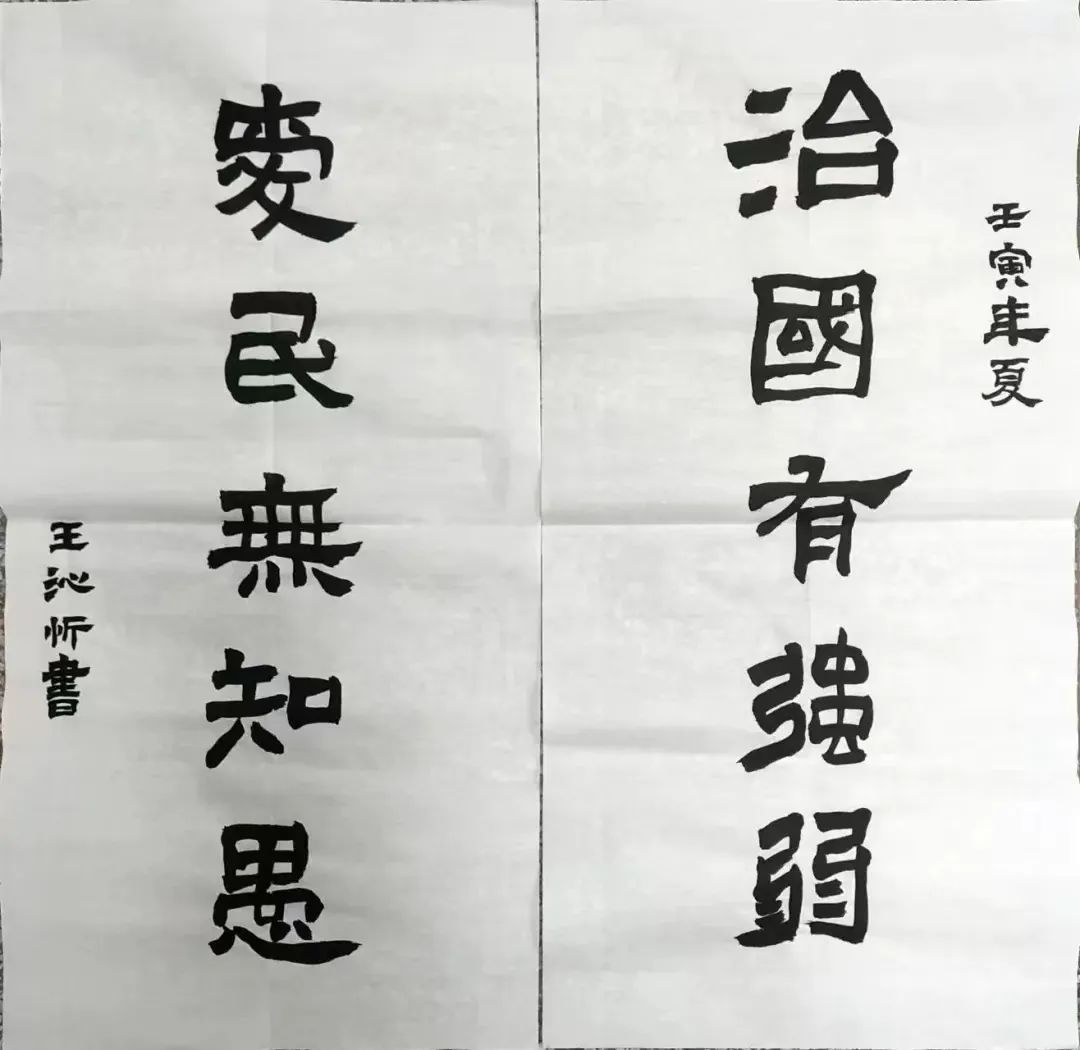 壬寅年夏
治國有強弱
愛民無知愚
王沁忻書